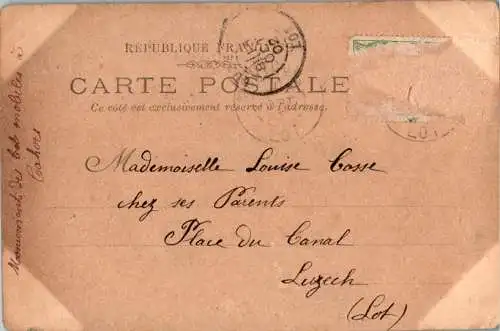 RÉPUBLIQUE FRAN
CARTE POSTALE
Ce côté est exclusivement réservé à l'adresse.
Mademoiselle Louise Cosse
chez ses Parents
Place du Canal
Luzech
(Lot)
LOT
LOT
LOT
Monument des mobiles à
Cahors